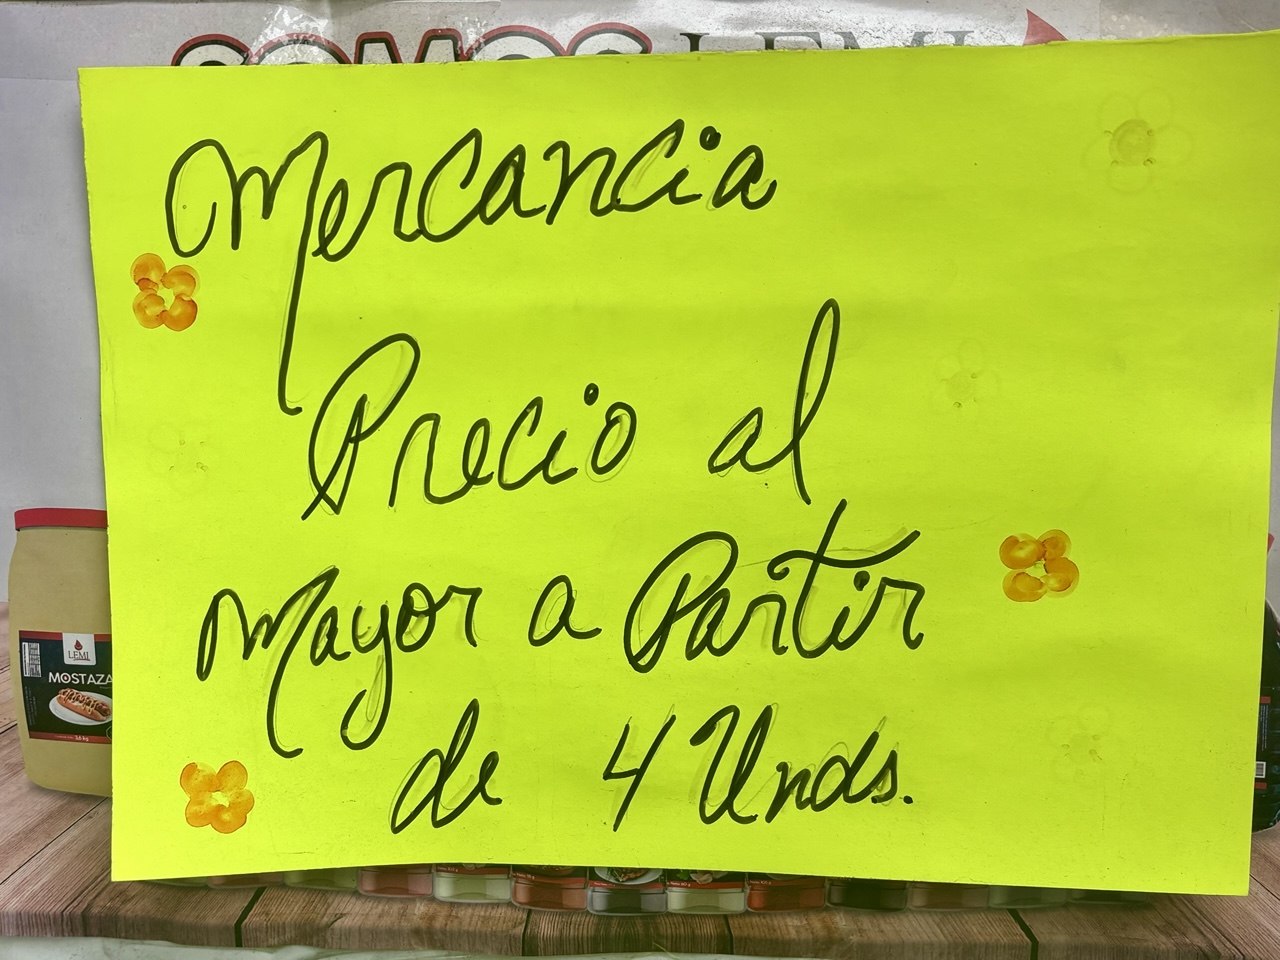 SOMOS LEMI
Mercancia
Precio al
Mayor a Partir
de 4 Unds.
LEMI
MOSTAZA